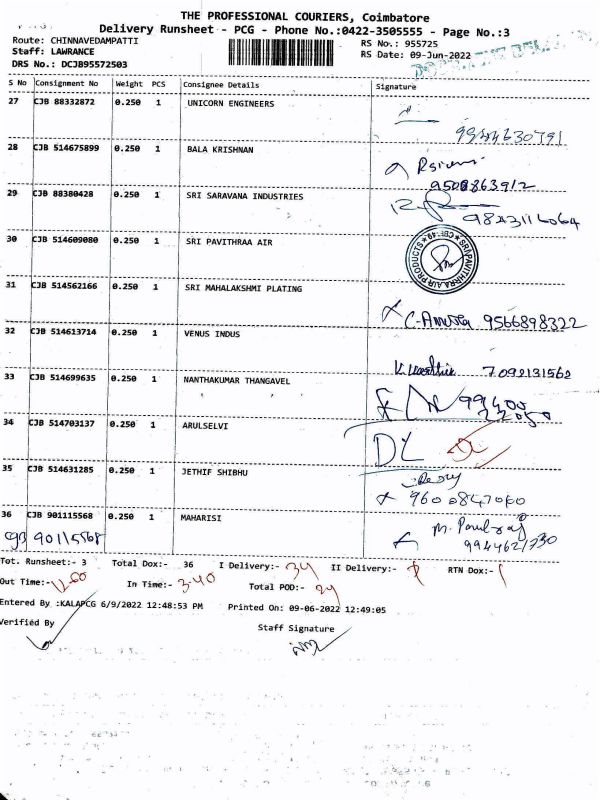 THE PROFESSIONAL COURIERS, Coimbatore
Delivery Runsheet - PCG - Phone No.:0422-3505555 - Page No.:3
Route: CHINNAVEDAMPATTI
RS No.: 955725
Staff: LAWRANCE
RS Date: 09-Jun-2022
DRS No.: DCJB95572503
S No Consignment No Weight PCS Consignee Details Signature
27 CJB 88332872 0.250 1 UNICORN ENGINEERS
28 CJB 514675899 0.250 1 BALA KRISHNAN
9508863912
29 CJB 88380428 0.250 1 SRI SARAVANA INDUSTRIES
30 CJB 514609080 0.250 1 SRI PAVITHRAA AIR
31 CJB 514562166 0.250 1 SRI MAHALAKSHMI PLATING
9566898322
32 CJB 514613714 0.250 1 VENUS INDUS
7092131562
33 CJB 514699635 0.250 1 NANTHAKUMAR THANGAVEL
34 CJB 514703137 0.250 1 ARULSELVI
DL
35 CJB 514631285 0.250 1 JETHIF SHIBHU
36 CJB 901115568 0.250 1 MAHARISI
Tot. Runsheet:- 3 Total Dox:- 36 I Delivery:- 34 II Delivery:- RTN Dox:-
Out Time:- In Time:- 3-40 Total POD:-
Entered By :KALAPCG 6/9/2022 12:48:53 PM Printed On: 09-06-2022 12:49:05
Verified By Staff Signature